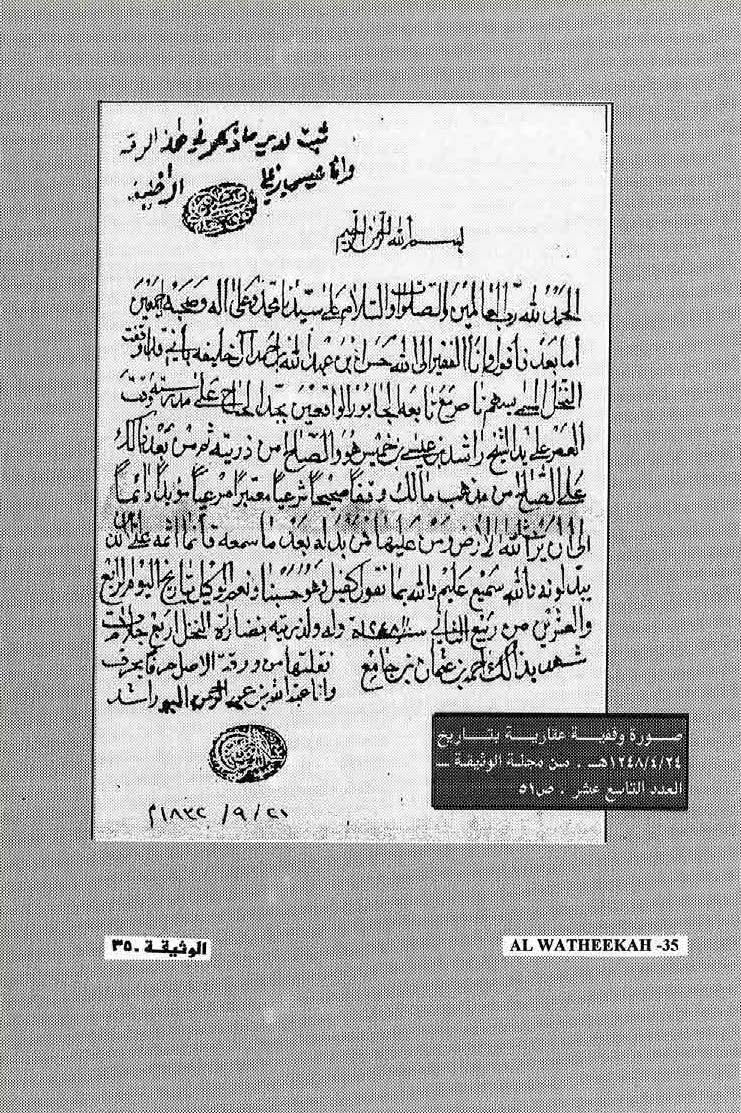 ثبت لدي ما ذكر في هذه الورقة
وانا
بسم الله الرحمن الرحيم
الحمد لله رب العالمين والصلوات والسلام على سيدنا محمد وعلى اله وصحبه اجمعين
اما بعد فأقول وانا الفقير الى الله حسن بن عبد الله بن احمد آل خليفه بأني قد اوقفت
النخل المسمى تابعه الواقعين بجد الحاج على مدرسته وقت
العمر على يد الشيخ راشد بن عيسى بن خميس هو والصلح من ذريته ثم من بعد ذالك
على الصلح من مذهب مالك وقفا صحيحا شرعيا معتبرا مرعيا مؤبدا دائما
الى ان يرث الله الارض ومن عليها فمن بدله بعد ما سمعه فأنما اثمه على الذين
يبدلونه والله سميع عليم والله بما نقول كفيل وهو حسبنا ونعم الوكيل بتاريخ اليوم الرابع
والعشرين من ربيع الثاني سنة ١٢٤٨ وله ولذريته من النخل اربع
شهد بذالك احمد بن عثمان بن جامع نقلتها من ورقة الاصل حرفا بحرف
وانا عبد الله بن عبد الرحمن راشد
٢١ / ٩ / ١٨٣٢م
صورة وقفية عقارية بتاريخ
١٢٤٨/٤/٢٤هـ . من مجلة الوثيقة ـ
العدد التاسع عشر . ص٥١
الوثيقة . ٣٥
AL WATHEEKAH -35